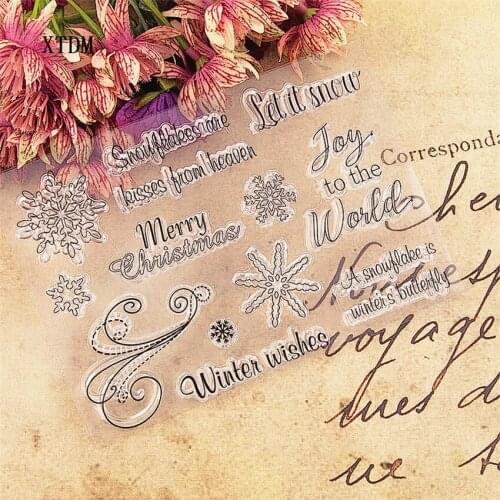 XTDM
Snowflakes are
kisses from heaven
Let it snow
Joy
to the
World
Merry
Christmas
A snowflake is
winter's butterfly
Winter wishes
Corresponda
voyage
mes d